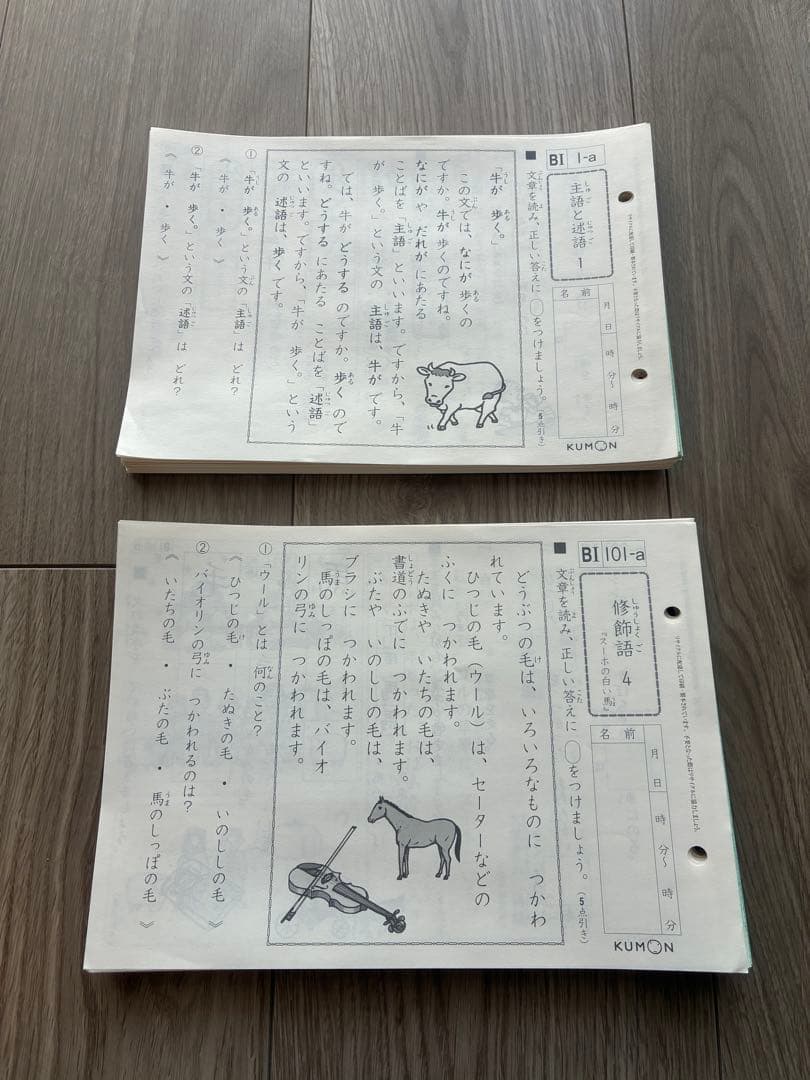 BI 1-a
主語と述語 1
月 日 時 分～ 時 分
名前
KUMON
■ 文章を読み、正しい答えに ◯をつけましょう。(5点引き)
「牛が 歩く。」
この文では、なにが 歩くの
ですか。牛が 歩くのですね。
なにがや だれが にあたる
ことばを「主語」といいます。ですから、「牛
が 歩く。」という文の 主語は、牛が です。
では、牛が どうする のですか。歩く ので
すね。どうする にあたる ことばを「述語」
といいます。ですから、「牛が 歩く。」という
文の 述語は、歩く です。
① 「牛が 歩く。」という文の「主語」は どれ?
《 牛が ・ 歩く 》
② 「牛が 歩く。」という文の「述語」は どれ?
《 牛が ・ 歩く 》
BI 101-a
修飾語 4
『スーホの白い馬』
月 日 時 分～ 時 分
名前
KUMON
■ 文章を読み、正しい答えに ◯をつけましょう。(5点引き)
どうぶつの毛は、いろいろなものに つかわ
れています。
ひつじの毛(ウール)は、セーターなどの
ふくに つかわれます。
たぬきや いたちの毛は、
書道のふでに つかわれます。
ぶたや いのししの毛は、
ブラシに つかわれます。
馬のしっぽの毛は、バイオ
リンの弓に つかわれます。
① 「ウール」とは 何のこと?
《 ひつじの毛 ・ たぬきの毛 ・ いのししの毛 》
② バイオリンの弓に つかわれるのは?
《 いたちの毛 ・ ぶたの毛 ・ 馬のしっぽの毛 》